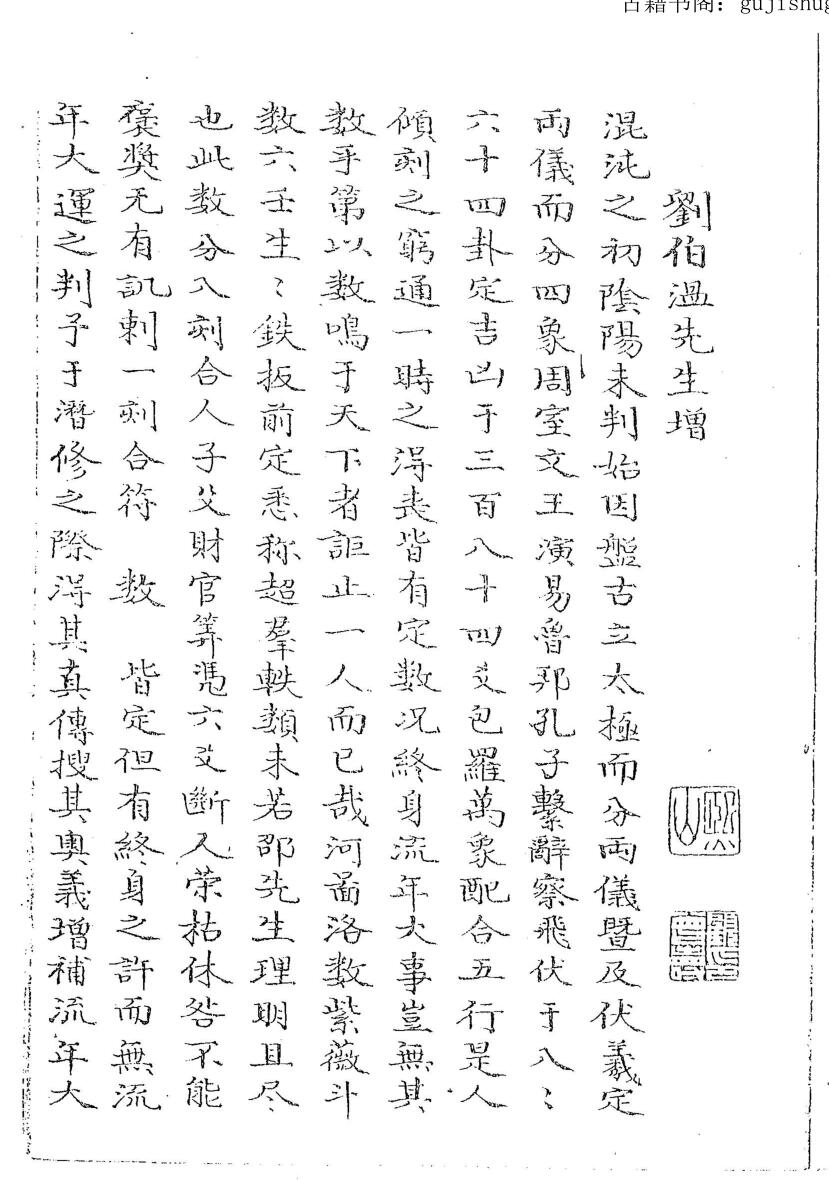 古籍书阁：gujishug
劉伯溫先生增
混沌之初陰陽未判始因盤古立太極而分両儀暨及伏羲定
両儀而分四象周室文王演易魯邦孔子繫辭察飛伏于八〻
六十四卦定吉凶于三百八十四爻包羅萬象配合五行是人
傾刻之窮通一時之淂丧皆有定数况終身流年大事豈無其
数乎第以数鳴于天下者詎止一人而已哉河啚洛数紫薇斗
数六壬生〻鉄扳前定悉称超羣軼類未若邵先生理明且尽
也此数分八刻合人子父財官筭憑六爻斷人荣枯休咎不能
襃奬无有訊剌一刻合符 数 皆定但有終身之許而無流
年大運之判予于潛修之際淂其真傳搜其奥義增補流年大